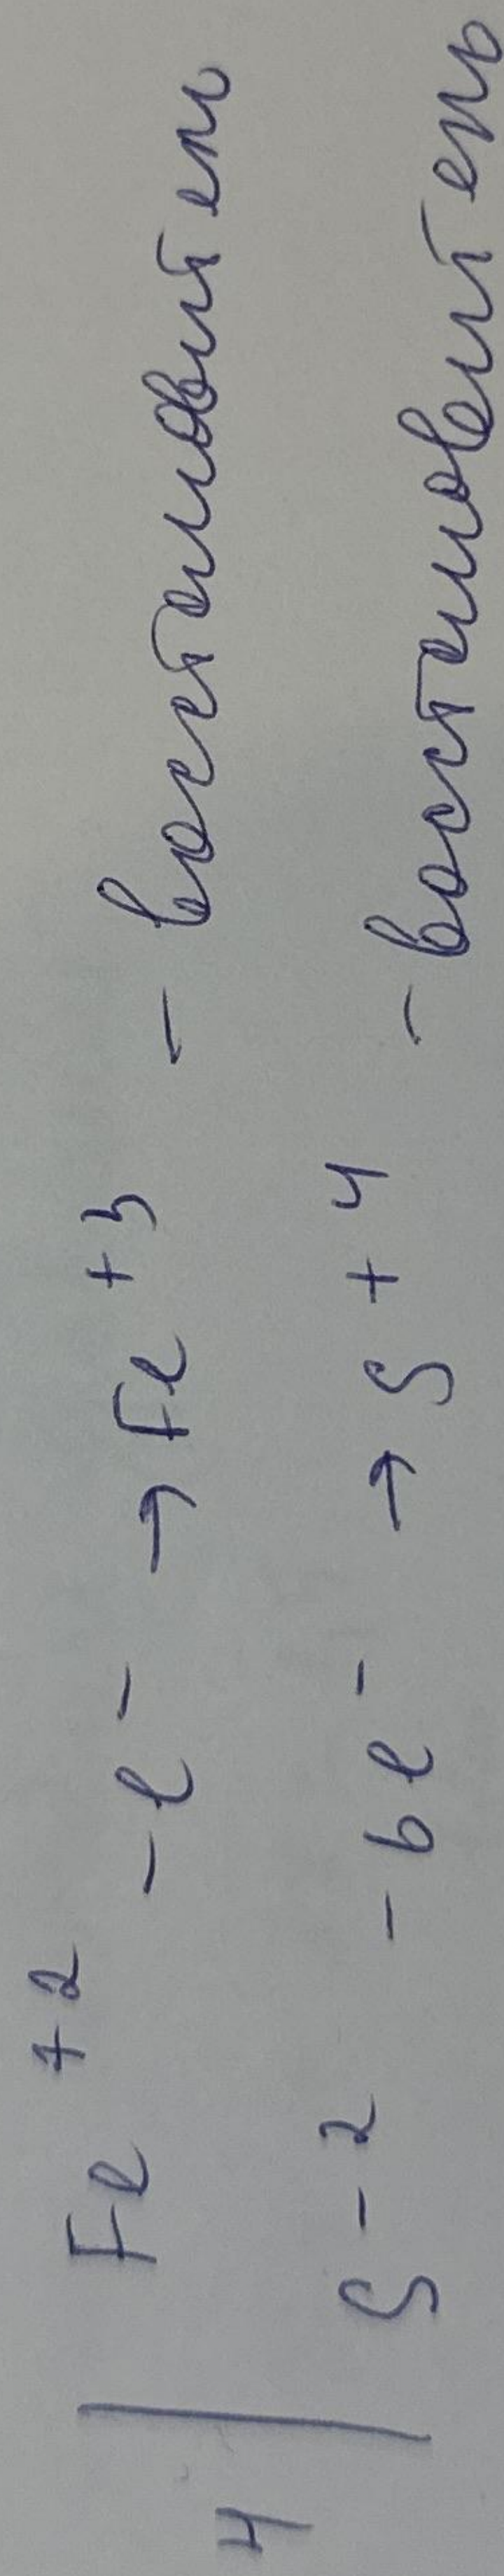 4 | Fe +2 - e - → Fe +3 - восстановитель
S -2 - 6 e - → S +4 - восстановитель